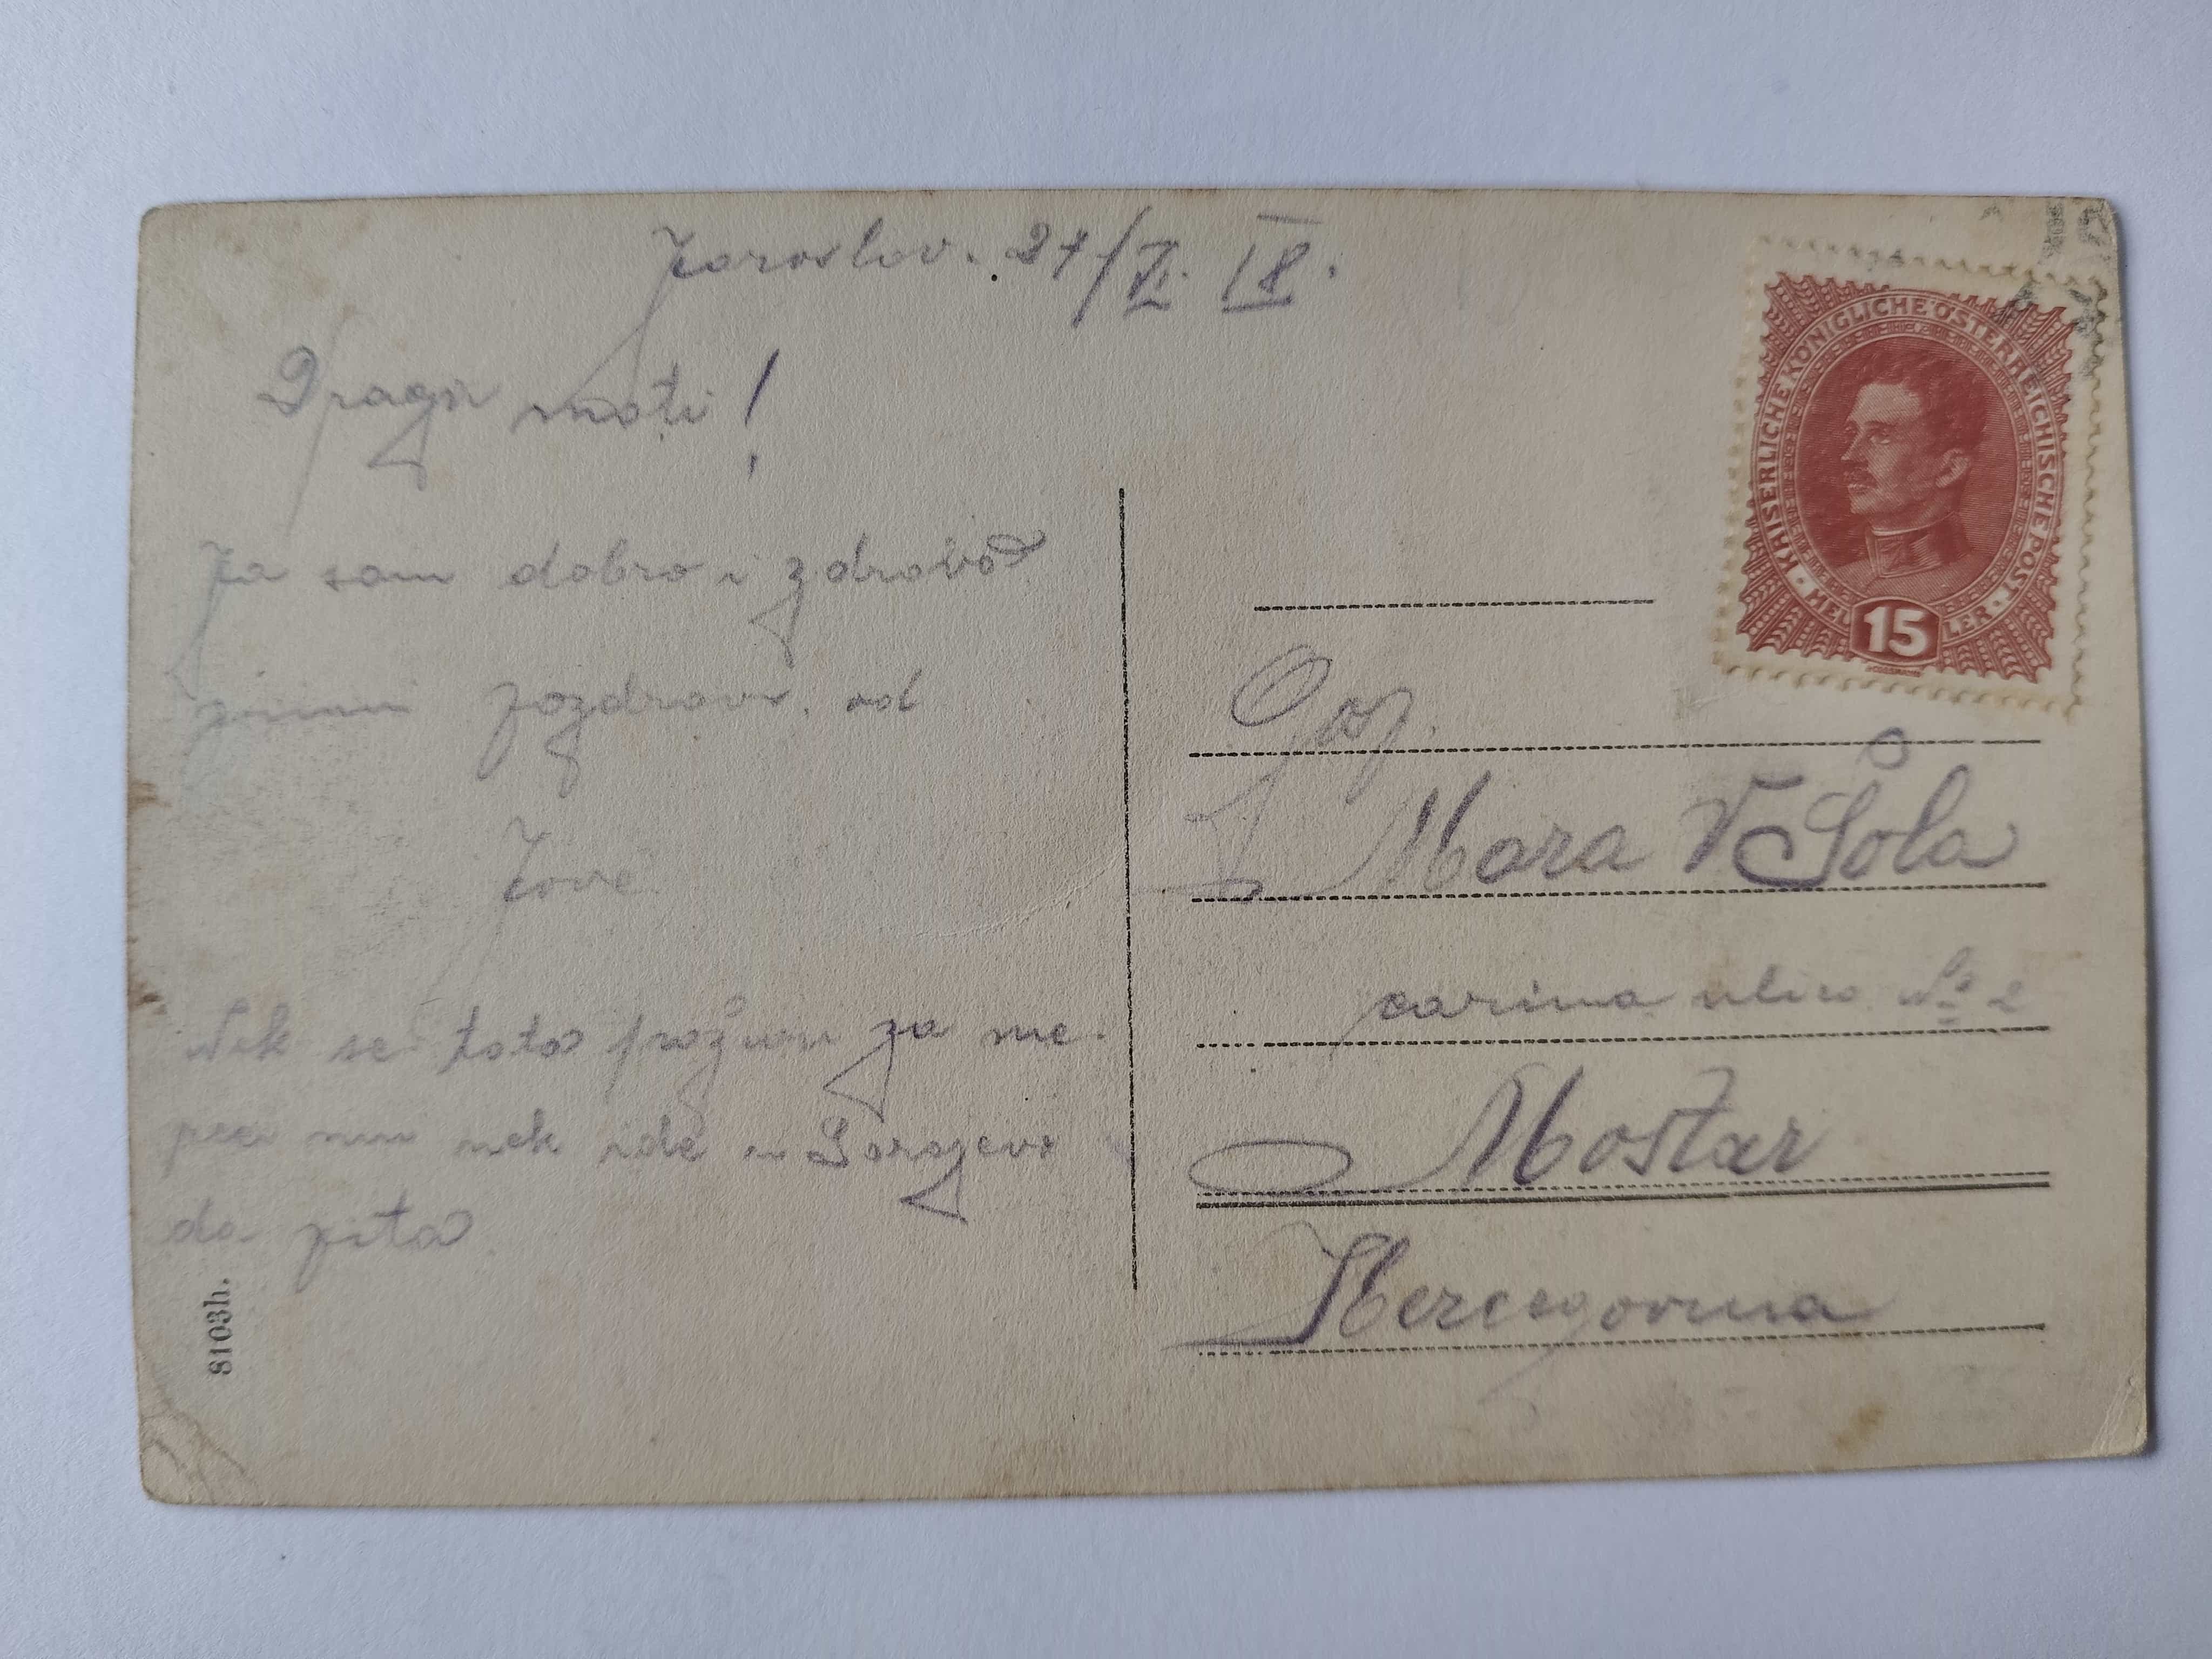 Jaroslav. 27/VI. 18.
Draga mati!
Ja sam dobro i zdravo
primi pozdrav od
Jove
Nek se tata požuri za me.
reci mu nek ide u Sarajevo
da pita
8103h.
KAISERLICHE KÖNIGLICHE ÖSTERREICHISCHE POST
HELLER
15
Gosp.
Mara V Šola
carina ulica No 2
Mostar
Hercegovina